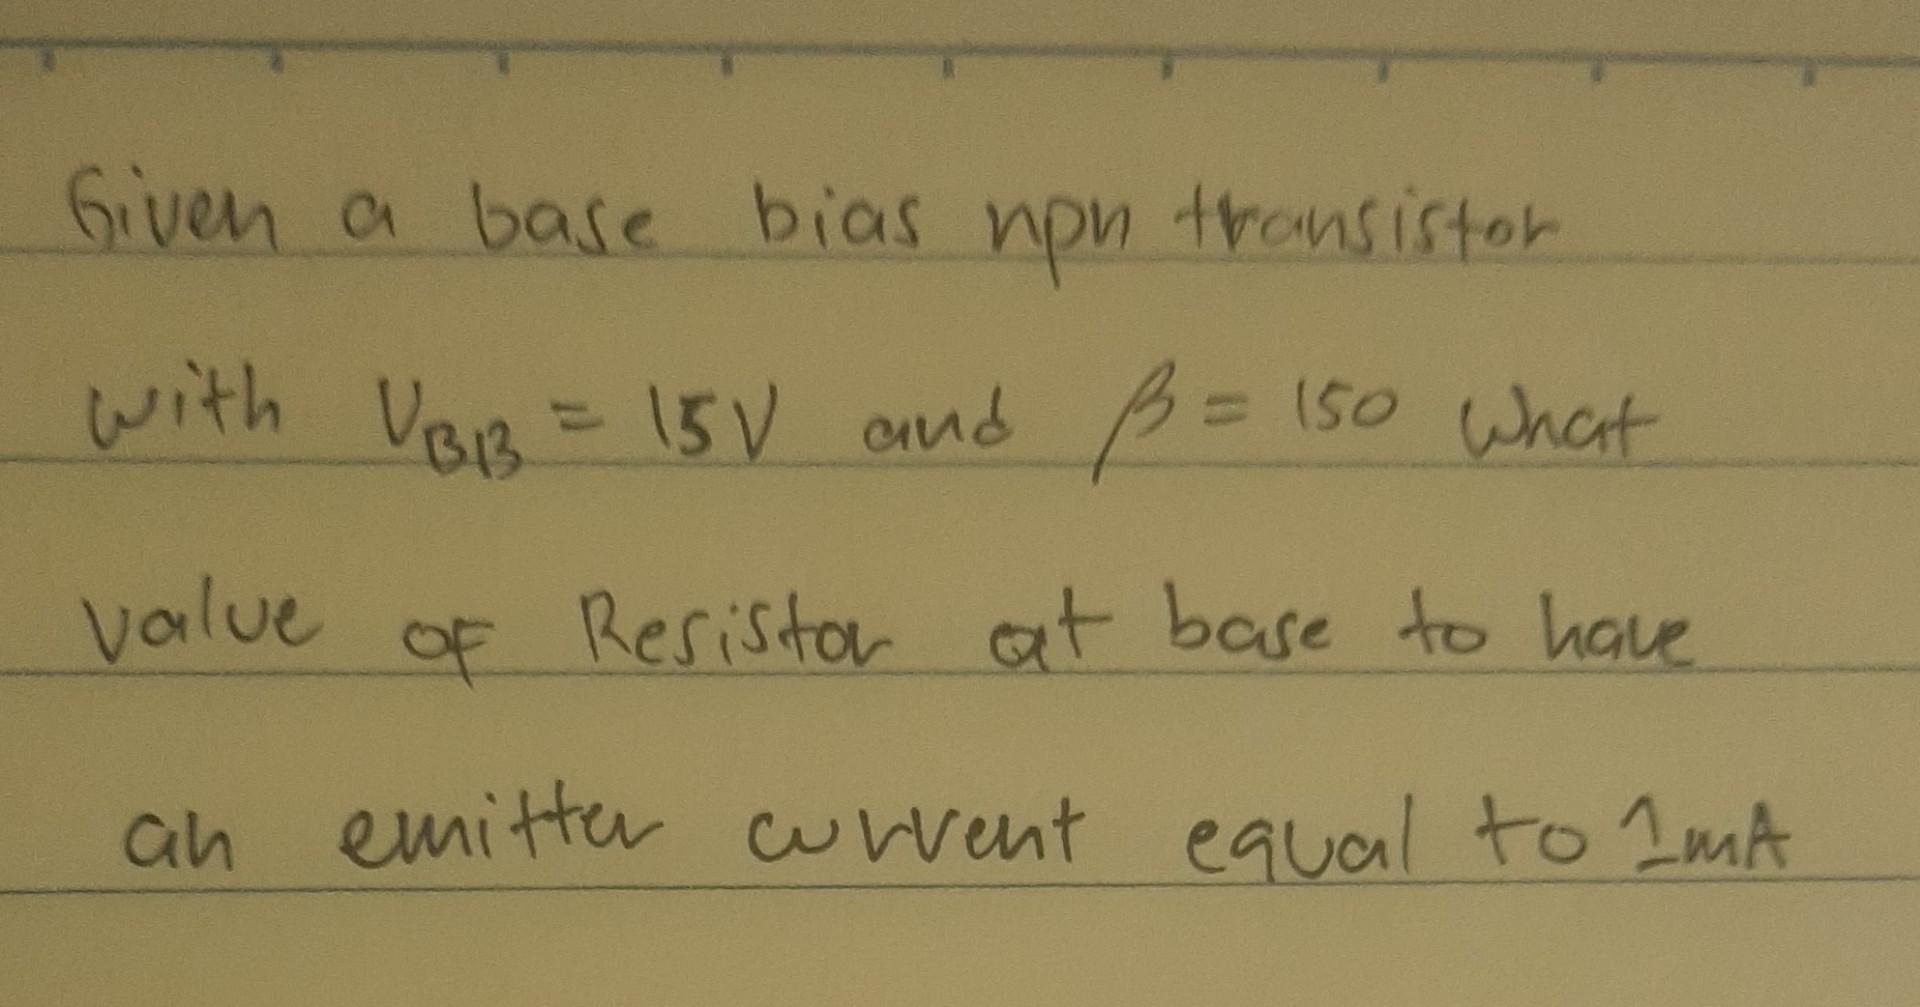 Given a base bias npn transistor
with V_BB = 15V and β = 150 What
value of Resistor at base to have
an emitter current equal to 1mA